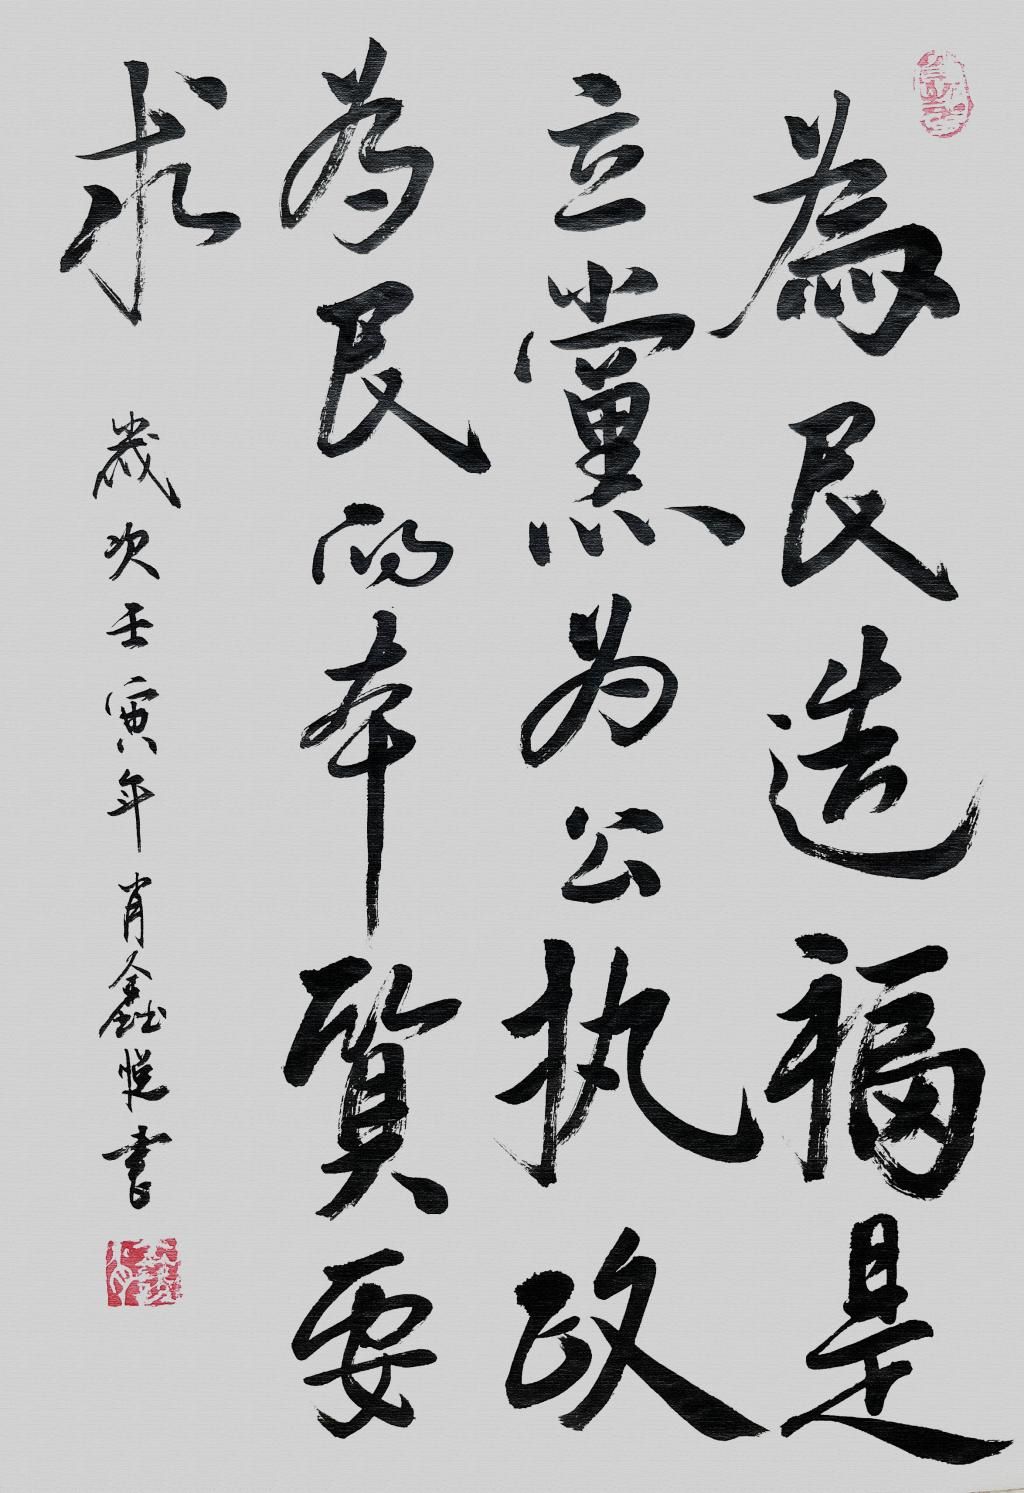 為民造福是
立黨为公执政
为民的本质要
求
歲次壬寅年肖鑫悦書